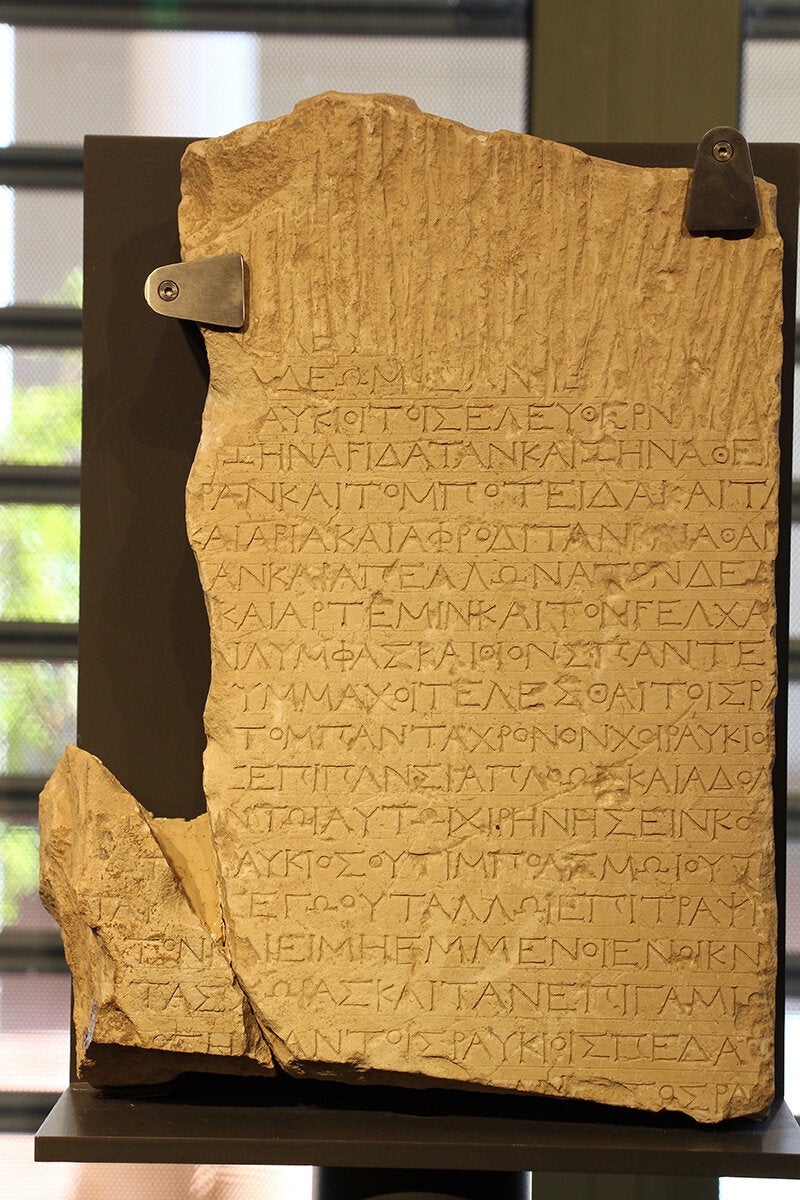 ΔΕΩΜ ΣΑΝ
ΑΥΚΙΟΙΤΟΙΣΕΛΕΥΘΕΡΝ
ΞΗΝΑϜΙΔΑΤΑΝΚΑΙΞΗΝΑΘΕ
ΡΑΝΚΑΙΤΟΜΠΟΤΕΙΔΑΚΑΙΤΑ
ΚΑΙΑΡΙΑΚΑΙΑΦΡΟΔΙΤΑΝΚΑΙΑΘΑΝ
ΑΝΚΑΙΑΠΕΛΛΩΝΑΤΟΝΔΕ
ΚΑΙΑΡΤΕΜΙΝΚΑΙΤΟΝϜΕΛΧΑ
ΝΙΛΥΜΦΑΣΚΑΙΘΙΟΝΣΠΑΝΤΕ
ΥΜΜΑΧΟΙΤΕΛΕΣΘΑΙΤΟΙΣΡΑ
ΤΟΜΠΑΝΤΑΧΡΟΝΟΝΧΟΙΡΑΥΚΙΟ
ΕΠΙΠΑΝΣΙΑΠΛΟΩΣΚΑΙΑΔΟΛ
ΝΤΩΙΑΥΤΩΙΧΙΡΗΝΗΣΕΙΝΚΟ
ΡΑΥΚΙΟΣΟΥΤΙΜΠΟΛΣΜΩΙΟΥΤ
ΕΓΩΟΥΤΑΛΛΩΙΕΠΙΤΡΑΨΙ
ΤΟΝ ΑΙΕΙΜΗΕΜΜΕΝΟΙΕΝΟΙΚΝ
ΤΑΣ ΩΡΑΣΚΑΙΤΑΝΕΠΙΓΑΜΙ
ΑΝΤΟΙΣΡΑΥΚΙΟΙΣΠΕΔΑ
ΤΟΣΡΑ